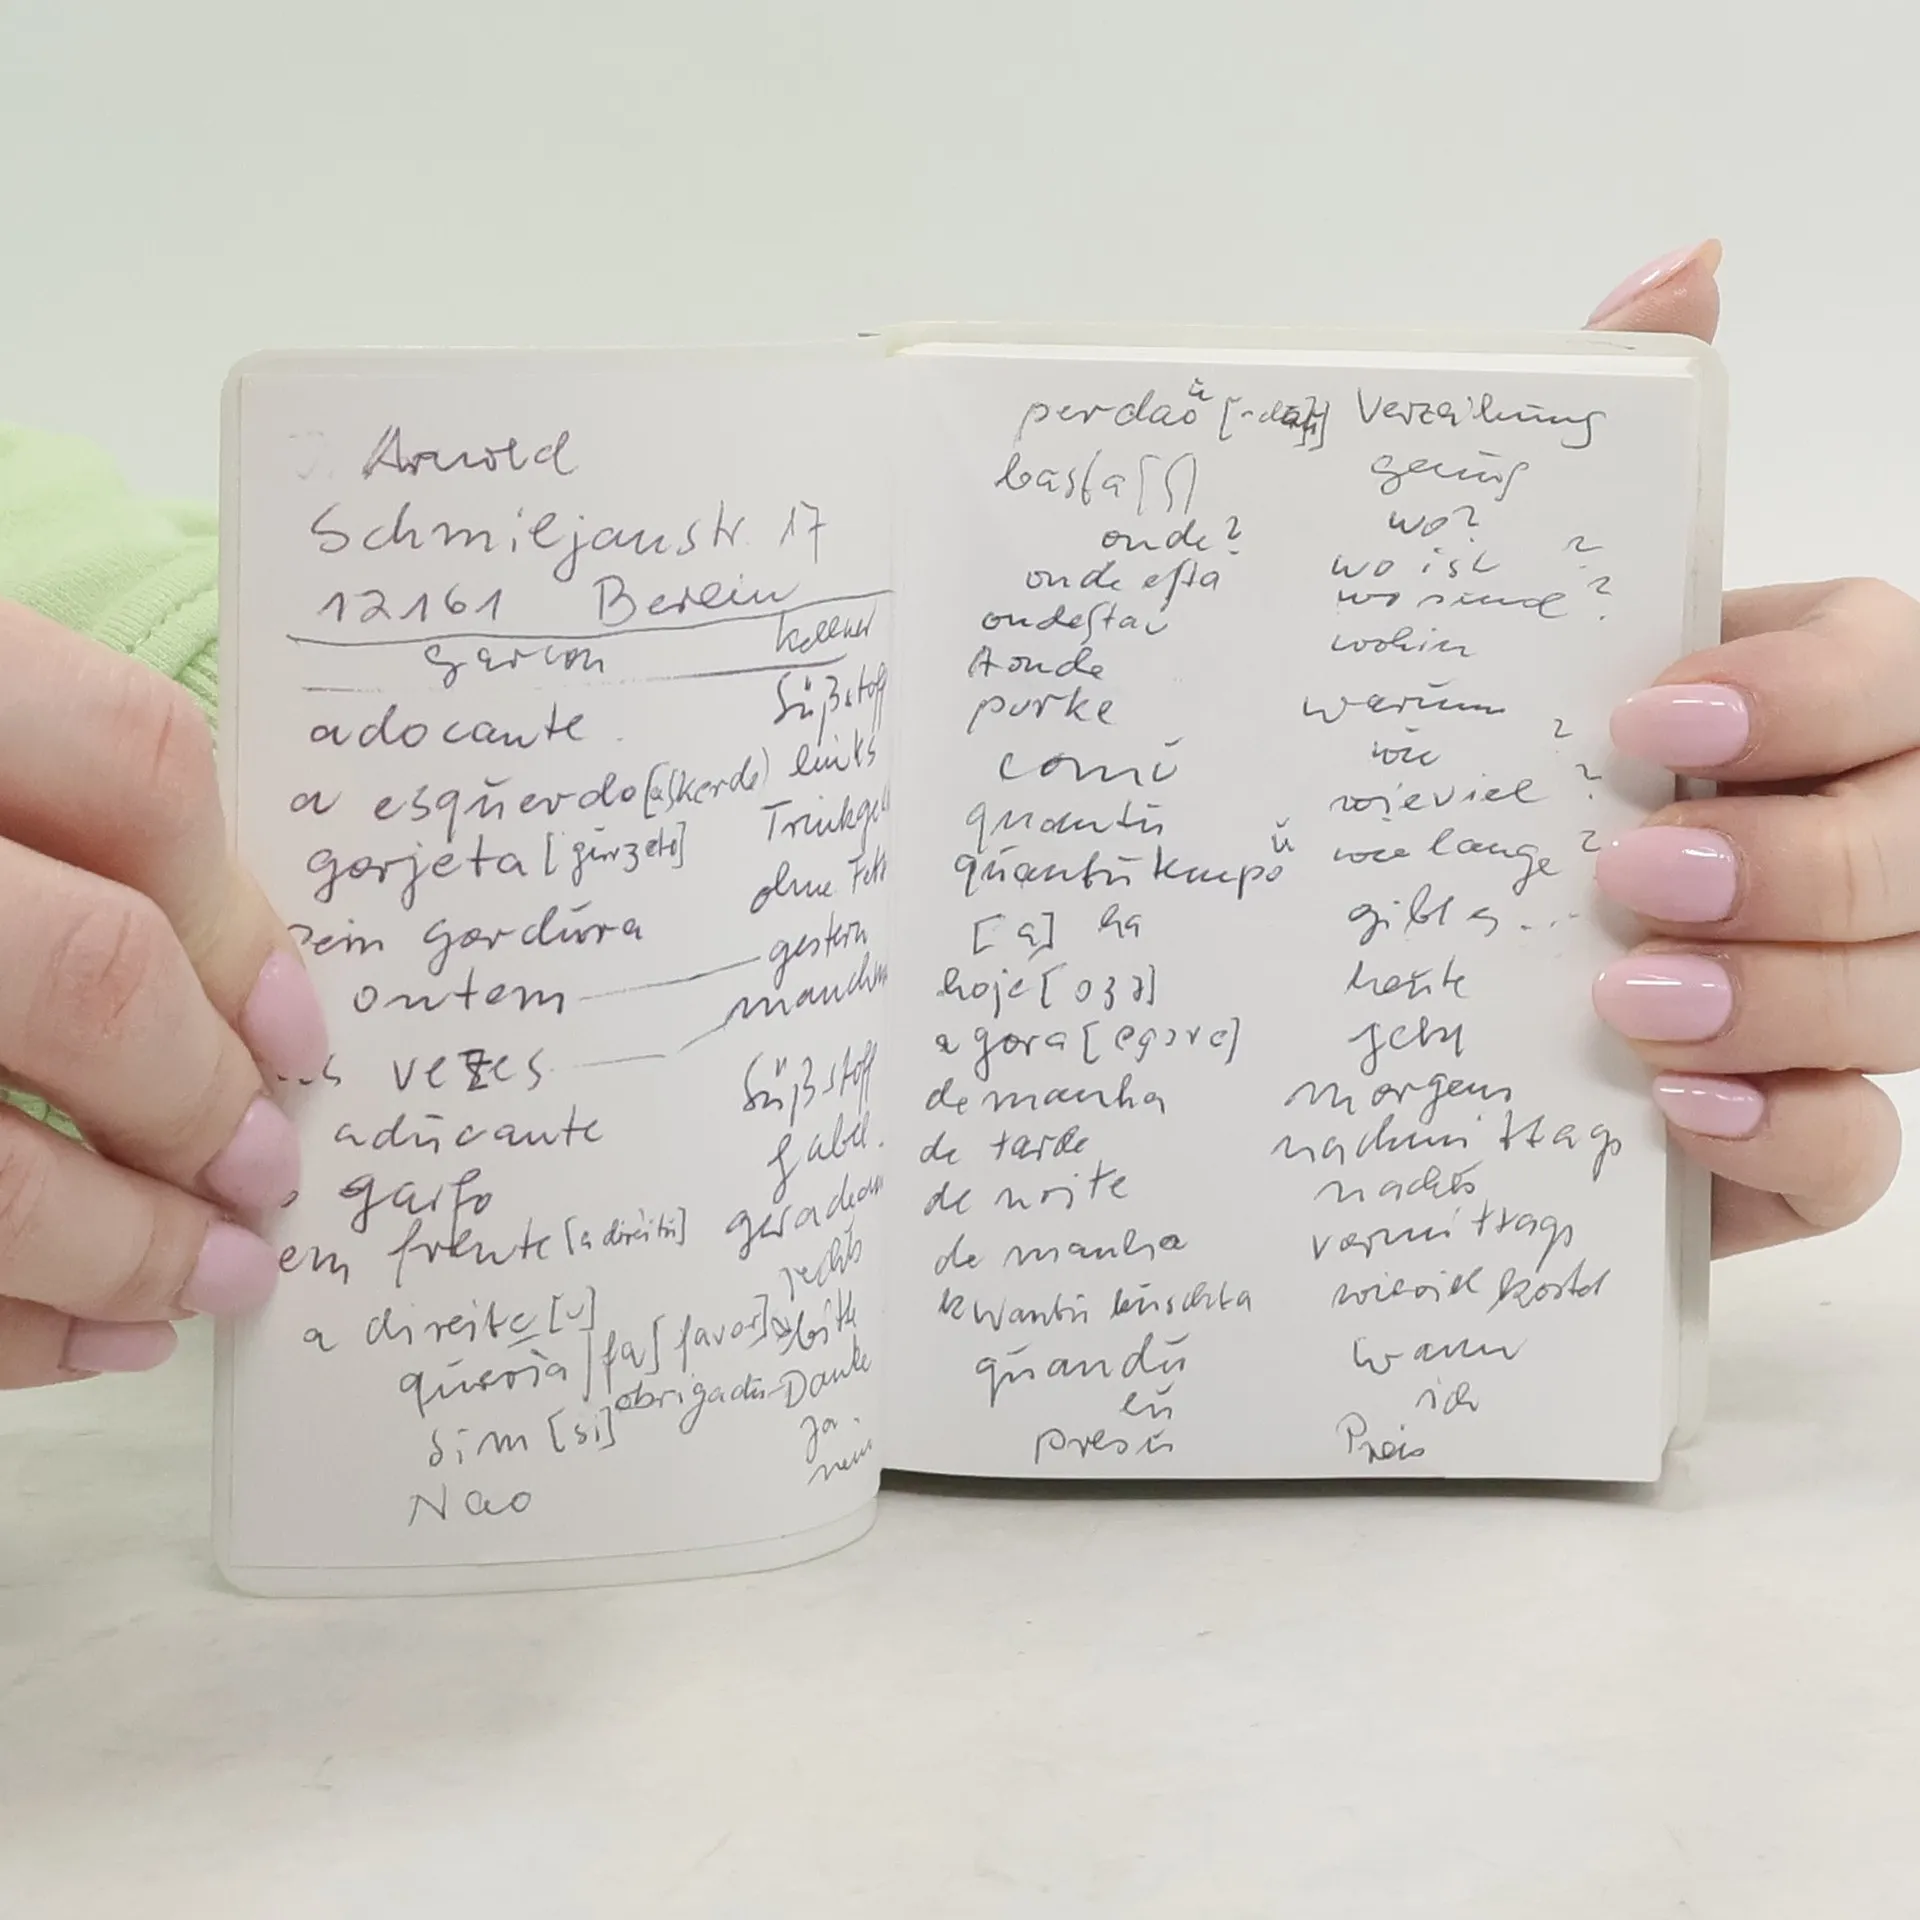 Arnold
Schmiljanstr. 17
12161 Berlin
garcon Kellner
adocante Süßstoff
a esquerdo links
gorjeta Trinkge
gordura ohne Fett
ontem gestern
vezes manchm
aducante Süßstoff
garfo Gabel
em frente [a direitu] geradeau
a direite [u] rechts
queria fa [favor] bitte
obrigadu Danke
Sim [si] Ja
Nao nein
perdao Verzeihung
basta [ʃ] genug
onde? wo?
onde esta wo ist ?
ondestau wo sind ?
Aonde wohin
purke warum
comu wie ?
quantu wieviel ?
quantu tempo wie lange ?
[a] ha gibt es ...
hoje [oʒə] heute
agora [ɐgɔrɐ] jetzt
demanha morgens
de tarde nachmittags
de noite nachts
de manha vormittags
kwantu kuschta wieviel kostet
quandu wann
eu ich
presu Preis